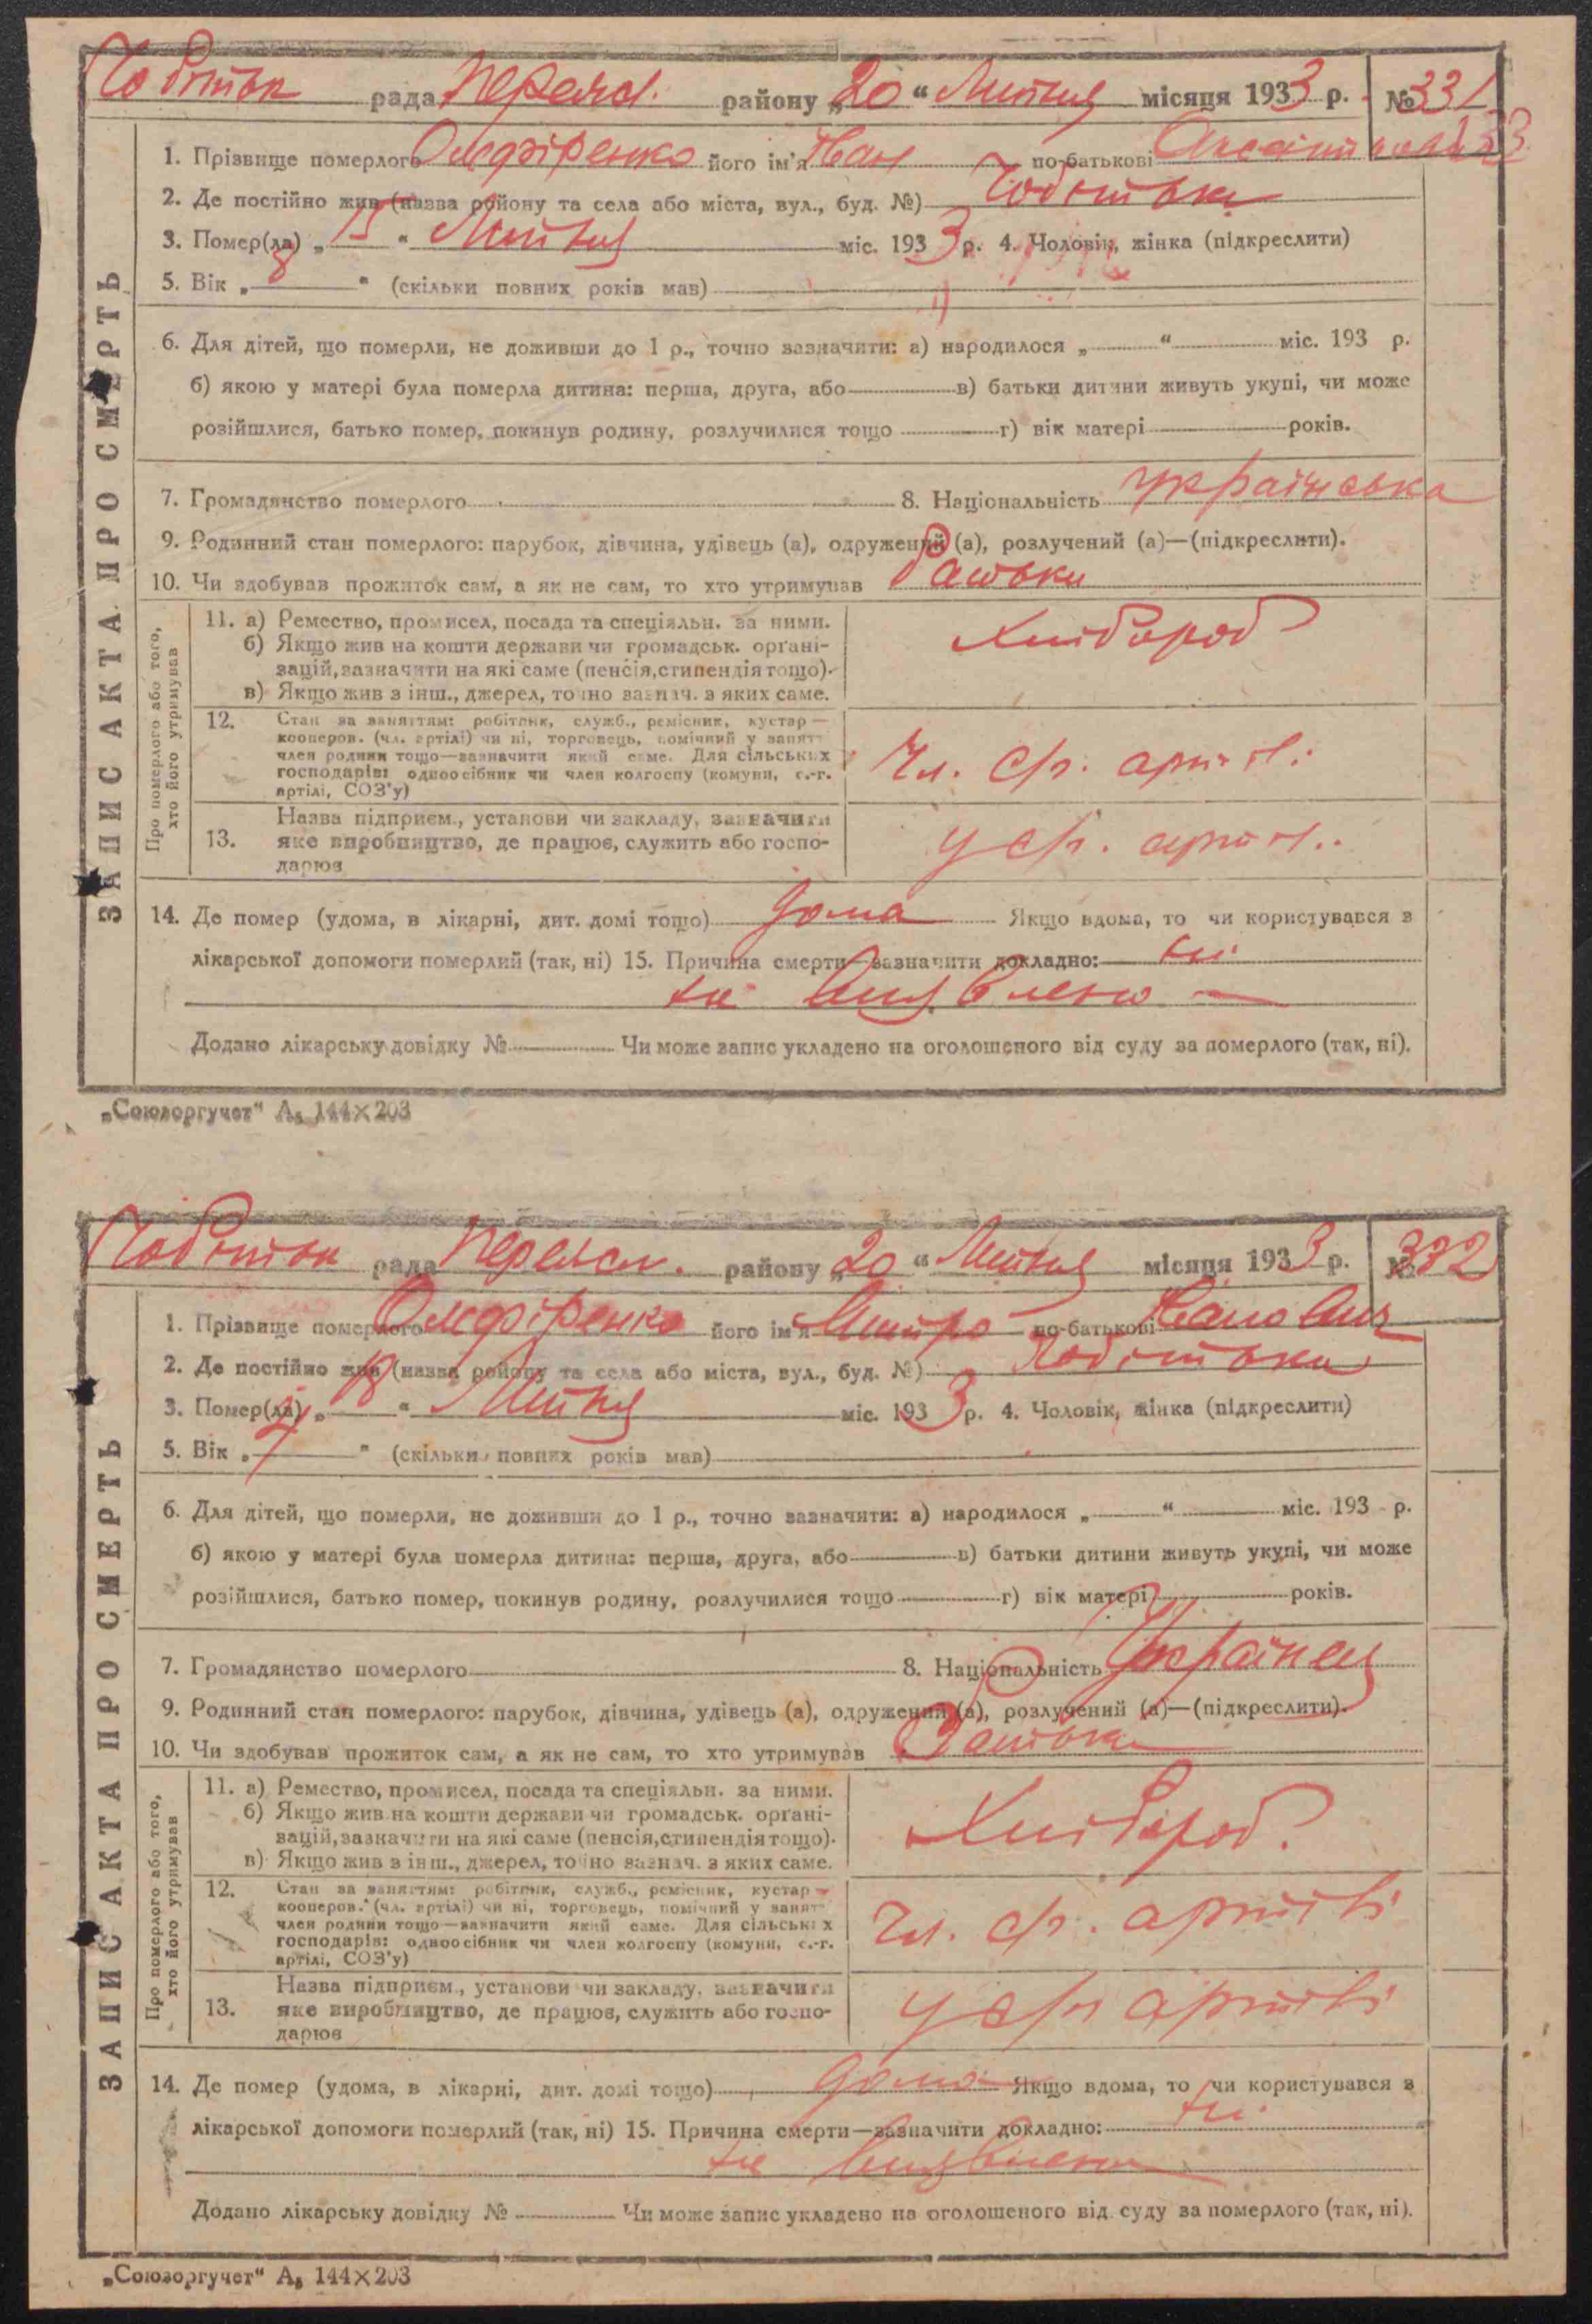 рада Переясл. району „20“ Липня місяця 1933 р. № 331
1. Прізвище померлого Онофрієнко його ім'я Іван по-батькові
2. Де постійно жив (назва району та села або міста, вул., буд. №) Чобітьки
3. Помер(ла) „15“ Липня міс. 1933 р. 4. Чоловік, жінка (підкреслити)
5. Вік „8“ (скільки повних років мав)
6. Для дітей, що померли, не доживши до 1 р., точно зазначити: а) народилося „ “ міс. 193 р.
б) якою у матері була померла дитина: перша, друга, або в) батьки дитини живуть укупі, чи може
розійшлися, батько помер, покинув родину, розлучилися тощо г) вік матері років.
7. Громадянство померлого 8. Національність українська
9. Родинний стан померлого: парубок, дівчина, удівець (а), одружений (а), розлучений (а)—(підкреслити).
10. Чи здобував прожиток сам, а як не сам, то хто утримував батьки
ЗАПИС АКТА ПРО СМЕРТЬ
Про померлого або того,
хто його утримував
11. а) Ремество, промисел, посада та спеціяльн. за ними.
б) Якщо жив на кошти держави чи громадськ. орґані-
зацій, зазначити на які саме (пенсія, стипендія тощо).
в) Якщо жив з інш., джерел, точно зазнач. з яких саме.
Хлібороб
12. Стан за заняттям: робітник, служб., ремісник, кустар—
кооперов. (чл. артілі) чи ні, торговець, помічний у занятт
член родини тощо—зазначити який саме. Для сільських
господарів: одноосібник чи член колгоспу (комуни, с.-г.
артілі, СОЗ'у)
Чл. с/г. артілі
13. Назва підприєм., установи чи закладу, зазначити
яке виробництво, де працює, служить або госпо-
дарює
у с/г. артіл.
14. Де помер (удома, в лікарні, дит. домі тощо) дома Якщо вдома, то чи користувався з
лікарської допомоги померлий (так, ні) 15. Причина смерти—зазначити докладно: ні
не виявлено
Додано лікарську довідку № Чи може запис укладено на оголошеного від суду за померлого (так, ні).
„Союзоргучет“ А₅ 144×203
рада Переясл. району „20“ Липня місяця 1933 р. № 332
1. Прізвище померлого Онофрієнко його ім'я Дмитро по-батькові Іванович
2. Де постійно жив (назва району та села або міста, вул., буд. №) Чобітьки
3. Помер(ла) „18“ Липня міс. 1933 р. 4. Чоловік, жінка (підкреслити)
5. Вік „ “ (скільки повних років мав)
6. Для дітей, що померли, не доживши до 1 р., точно зазначити: а) народилося „ “ міс. 193 р.
б) якою у матері була померла дитина: перша, друга, або в) батьки дитини живуть укупі, чи може
розійшлися, батько помер, покинув родину, розлучилися тощо г) вік матері років.
7. Громадянство померлого 8. Національність Українец
9. Родинний стан померлого: парубок, дівчина, удівець (а), одружений (а), розлучений (а)—(підкреслити).
10. Чи здобував прожиток сам, а як не сам, то хто утримував Батьки
ЗАПИС АКТА ПРО СМЕРТЬ
Про померлого або того,
хто його утримував
11. а) Ремество, промисел, посада та спеціяльн. за ними.
б) Якщо жив на кошти держави чи громадськ. орґані-
зацій, зазначити на які саме (пенсія, стипендія тощо).
в) Якщо жив з інш., джерел, точно зазнач. з яких саме.
Хлібороб
12. Стан за заняттям: робітник, служб., ремісник, кустар—
кооперов. (чл. артілі) чи ні, торговець, помічний у занятт
член родини тощо—зазначити який саме. Для сільських
господарів: одноосібник чи член колгоспу (комуни, с.-г.
артілі, СОЗ'у)
Чл. с/г. артілі
13. Назва підприєм., установи чи закладу, зазначити
яке виробництво, де працює, служить або госпо-
дарює
у с/г артілі
14. Де помер (удома, в лікарні, дит. домі тощо) дома Якщо вдома, то чи користувався з
лікарської допомоги померлий (так, ні) 15. Причина смерти—зазначити докладно: ні
не виявлено
Додано лікарську довідку № Чи може запис укладено на оголошеного від суду за померлого (так, ні).
„Союзоргучет“ А₅ 144×203